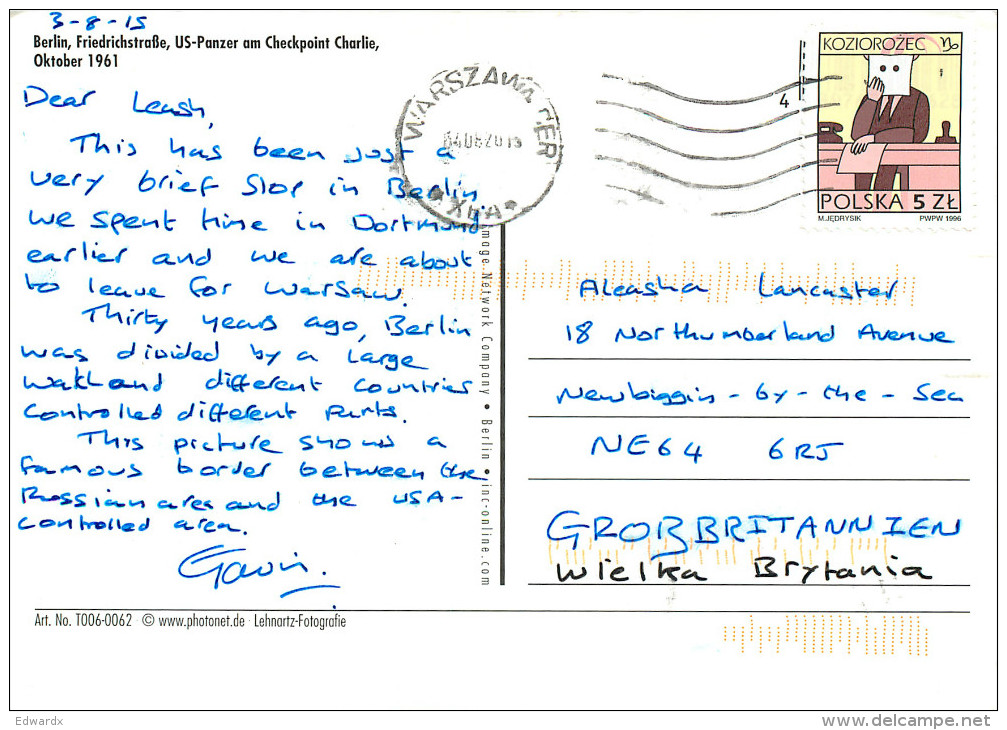 3-8-15
Berlin, Friedrichstraße, US-Panzer am Checkpoint Charlie,
Oktober 1961
Dear Leash,
This has been just a
very brief stop in Berlin.
We spent time in Dortmund
earlier and we are about
to leave for Warsaw.
Thirty years ago, Berlin
was divided by a large
wall and different countries
controlled different parts.
This picture shows a
famous border between the
Russian area and the USA-
controlled area.
Gavin.
Art. No. T006-0062 · © www.photonet.de · Lehnartz-Fotografie
Image Network Company • Berlin • inc-online.com
WARSZAWA CER
04082015
4
KOZIOROŻEC ♑
POLSKA 5 ZŁ
M.JĘDRYSIK PWPW 1996
Aleasha Lancaster
18 Northumberland Avenue
Newbiggin-by-the-Sea
NE64 6RJ
GROßBRITANNIEN
Wielka Brytania
Edwardx
http://www.delcampe.net